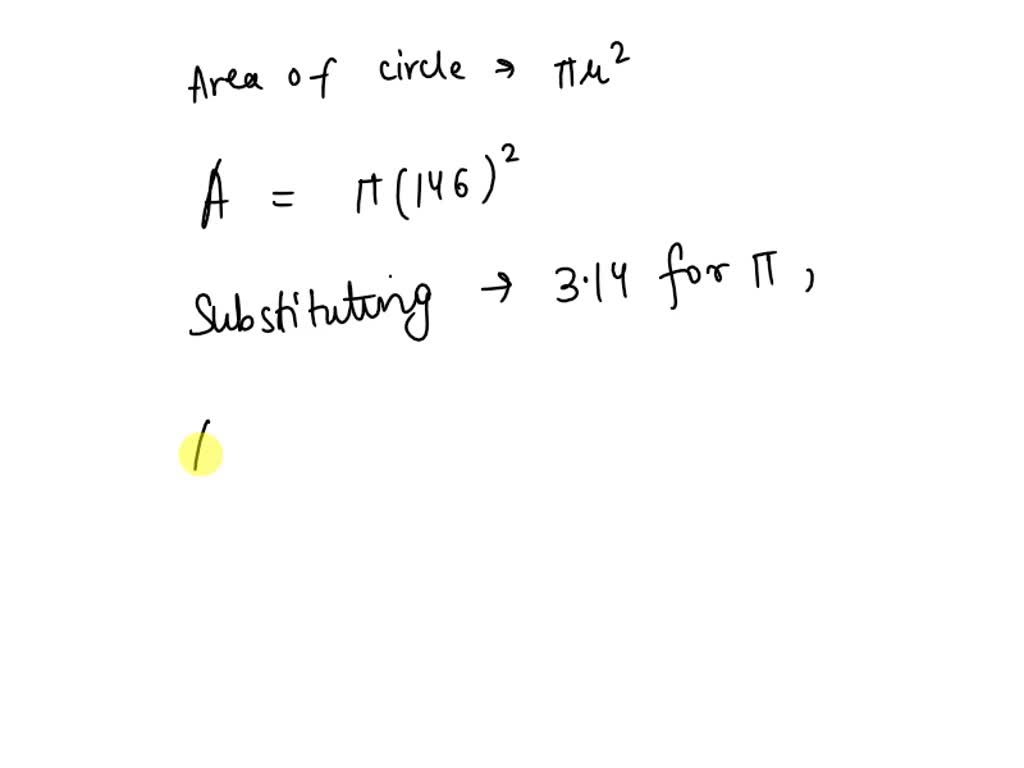 Area of circle → πr²
A = π(146)²
Substituting → 3.14 for π,